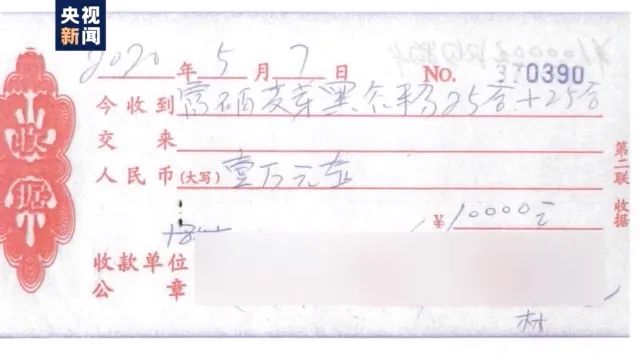 央视
新闻
2020年5月7日 NO. 370390
今收到富硒麦芽黑谷粉25合+25合
交来
人民币(大写)壹万元
¥10000元
收款单位
公章
收据
第二联 收据